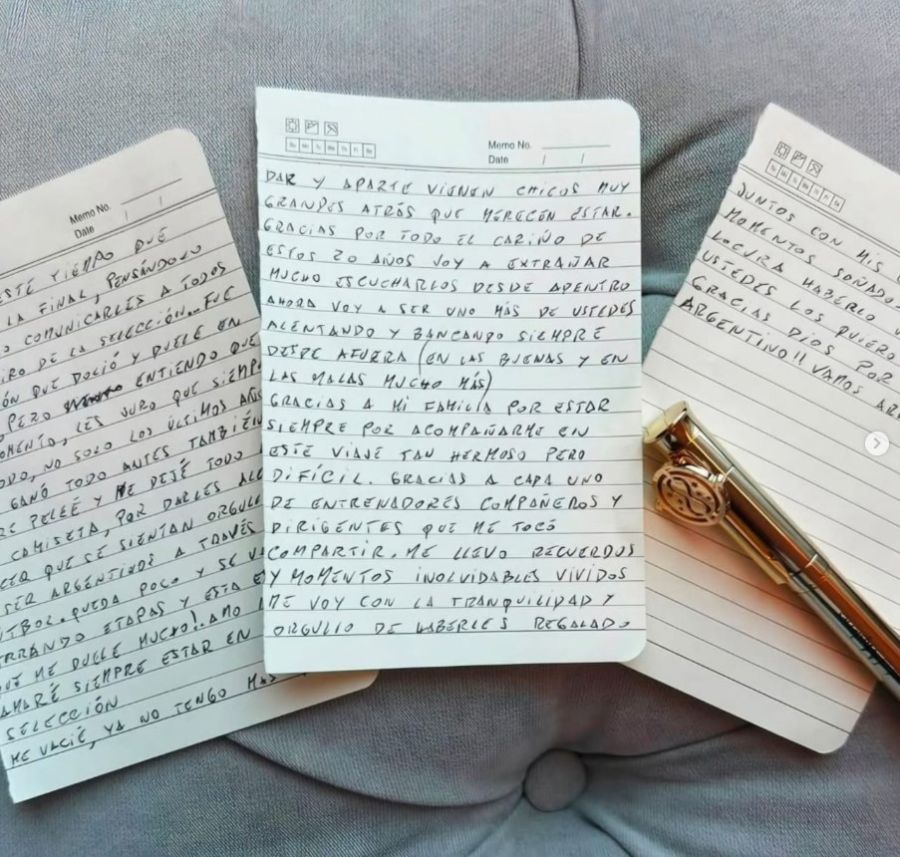 Memo No.
Date / /
ESTE TIEMPO QUE
LA FINAL, PENSÁNDOLO
COMUNICARLES A TODOS
IRO DE LA SELECCIÓN.. FUE
IÓN QUE DOLIÓ Y DUELE EN
PERO ENTIENDO QUE
OMENTO, LES JURO QUE SIEMP
ODO, NO SOLO LOS ÚLTIMOS AÑOS
GANÓ TODO ANTES TAMBIÉN
RE PELEÉ Y ME DEJÉ TODO
CAMISETA, POR DARLES ALE
CER QUE SE SIENTAN ORGULL
SER ARGENTINOS A TRAVÉS
ÚTBOL. QUEDA POCO Y SE VA
ERRANDO ETAPAS Y ESTA E
QUE ME DUELE MUCHO!. AMO
AMARÉ SIEMPRE ESTAR EN
SELECCIÓN
ME VACIÉ, YA NO TENGO MÁS
Memo No.
Date / /
DAR Y APARTE VIENEN CHICOS MUY
GRANDES ATRÁS QUE MERECEN ESTAR.
GRACIAS POR TODO EL CARIÑO DE
ESTOS 20 AÑOS VOY A EXTRAÑAR
MUCHO ESCUCHARLOS DESDE ADENTRO
AHORA VOY A SER UNO MÁS DE USTEDES
ALENTANDO Y BANCANDO SIEMPRE
DESDE AFUERA (EN LAS BUENAS Y EN
LAS MALAS MUCHO MÁS)
GRACIAS A MI FAMILIA POR ESTAR
SIEMPRE POR ACOMPAÑARME EN
ESTE VIAJE TAN HERMOSO PERO
DIFÍCIL. GRACIAS A CADA UNO
DE ENTRENADORES COMPAÑEROS Y
DIRIGENTES QUE ME TOCÓ
COMPARTIR. ME LLEVO RECUERDOS
Y MOMENTOS INOLVIDABLES VIVIDOS
ME VOY CON LA TRANQUILIDAD Y
ORGULLO DE HABERLES REGALADO
JUNTOS CON MIS
MOMENTOS SOÑADO
LOCURA HABERLO V
USTEDES LOS QUIERO
GRACIAS DIOS POR
ARGENTINO!! VAMOS AR